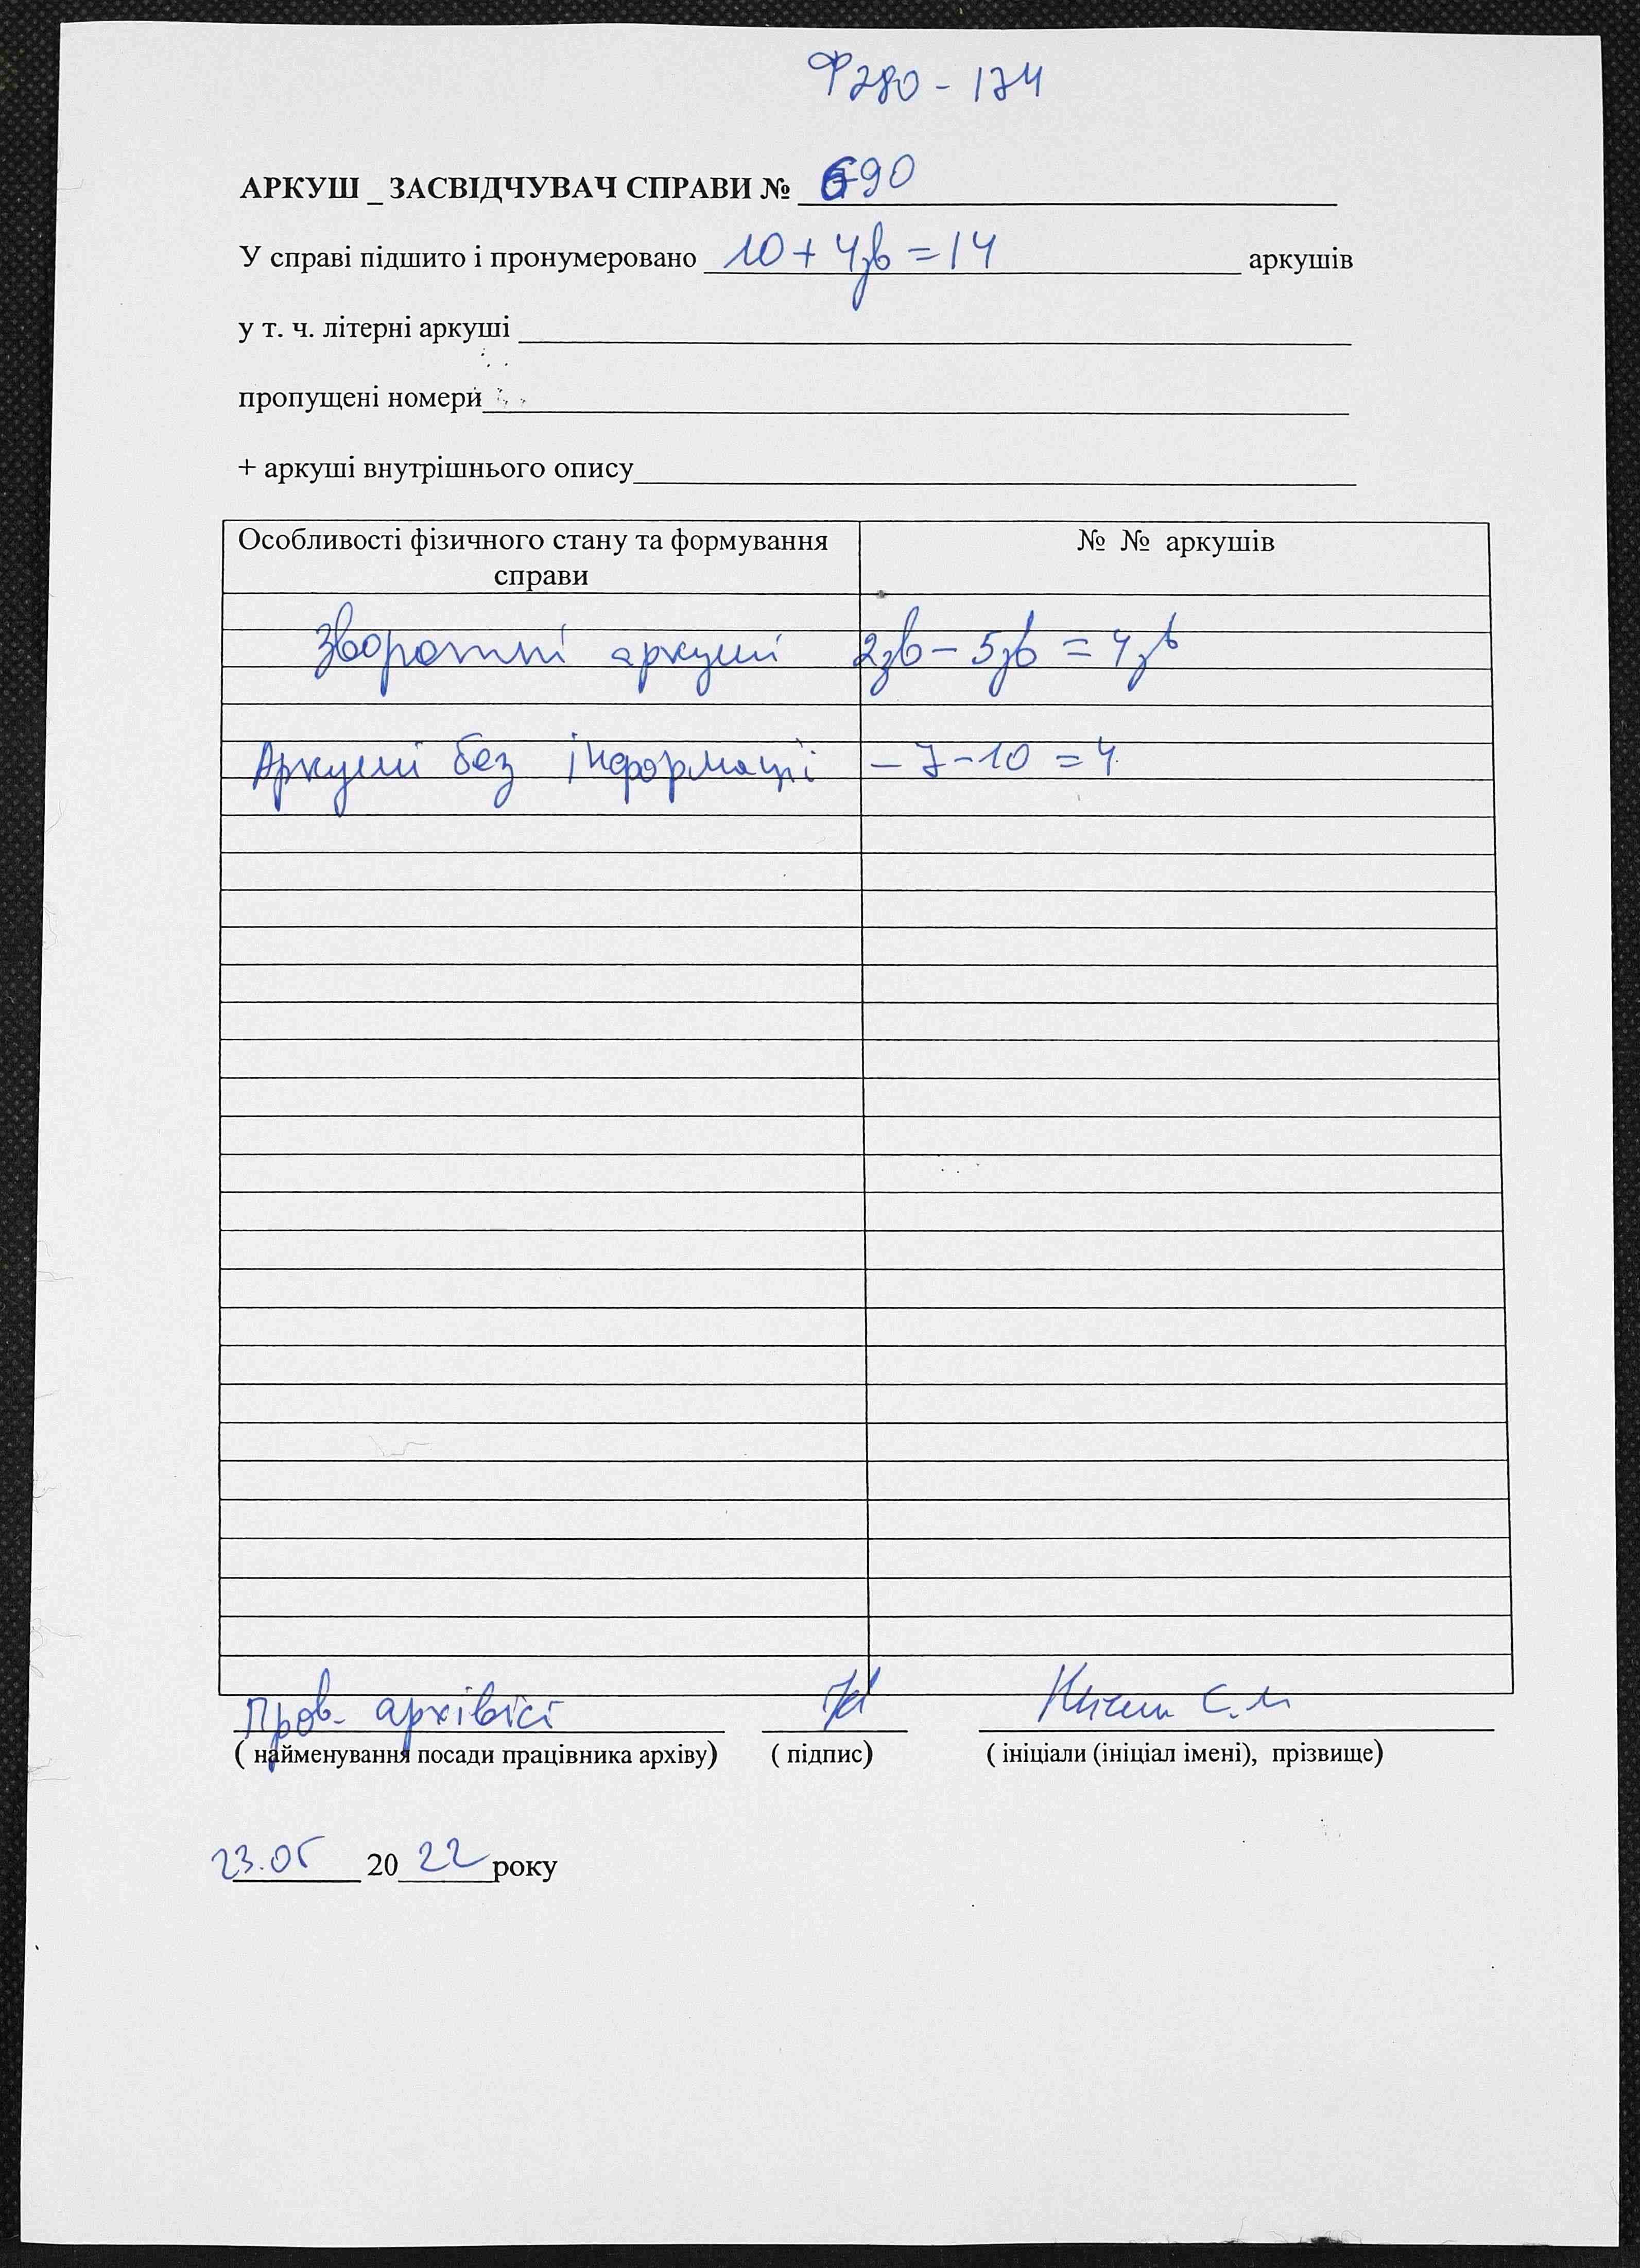 Ф280 - 174
АРКУШ _ ЗАСВІДЧУВАЧ СПРАВИ № 690
У справі підшито і пронумеровано 10 + 4зв = 14 аркушів
у т. ч. літерні аркуші
пропущені номери
+ аркуші внутрішнього опису
Особливості фізичного стану та формування справи № № аркушів
Зворотні аркуші 2зв – 5зв = 4зв
Аркуші без інформації – 7 – 10 = 4
Пров. архівіст С.М
( найменування посади працівника архіву) ( підпис) ( ініціали (ініціал імені), прізвище)
23.05 2022 року